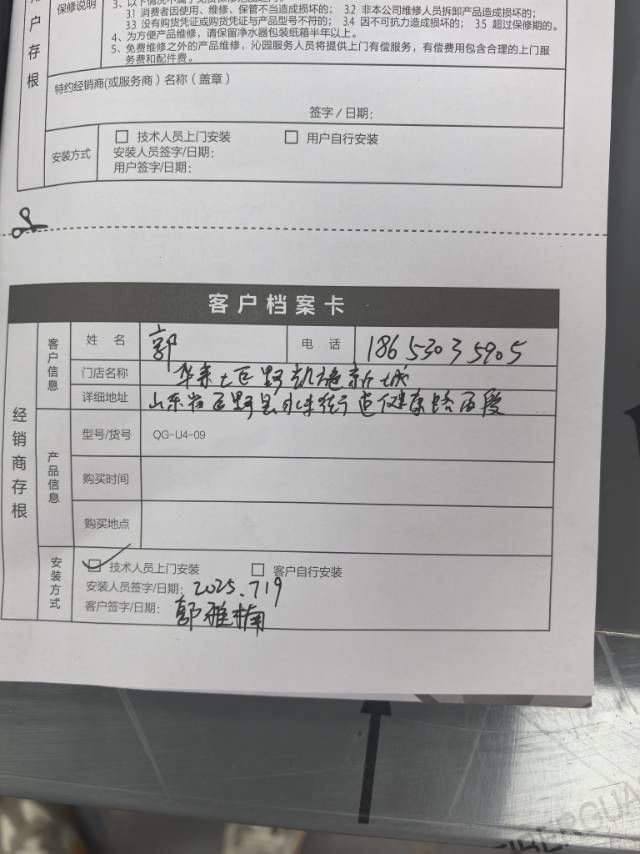 保修说明
3.1 消费者因使用、维修、保管不当造成损坏的； 3.2 非本公司维修人员拆卸产品造成损坏的；
3.3 没有购货凭证或购货凭证与产品型号不符的； 3.4 因不可抗力造成损坏的； 3.5 超过保修期的。
4、为方便产品维修，请保留净水器包装纸箱半年以上。
5、免费维修之外的产品维修，沁园服务人员将提供上门有偿服务，有偿费用包含合理的上门服
务费和配件费。
户存根
特约经销商(或服务商）名称（盖章）
签字 / 日期：
安装方式
技术人员上门安装 用户自行安装
安装人员签字/日期：
用户签字/日期：
客户档案卡
经销商存根
客户信息
姓 名 郭 电 话 18653035905
门店名称 巨野凯旋新城
详细地址 山东省巨野县永丰街道健康路西段
产品信息
型号/货号 QG-U4-09
购买时间
购买地点
安装方式
技术人员上门安装 客户自行安装
安装人员签字/日期： 2025.719
客户签字/日期： 郭雅楠